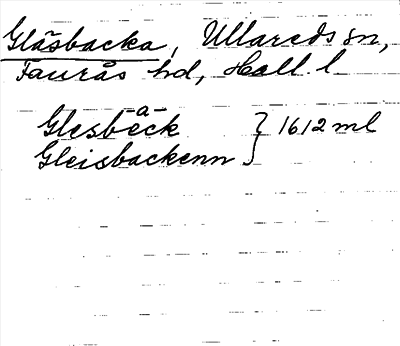 Gläsbacka, Ullareds sn,
Faurås hd, Hall l
-a-
Glesbeck } 1612 ml
Gleisbackenn